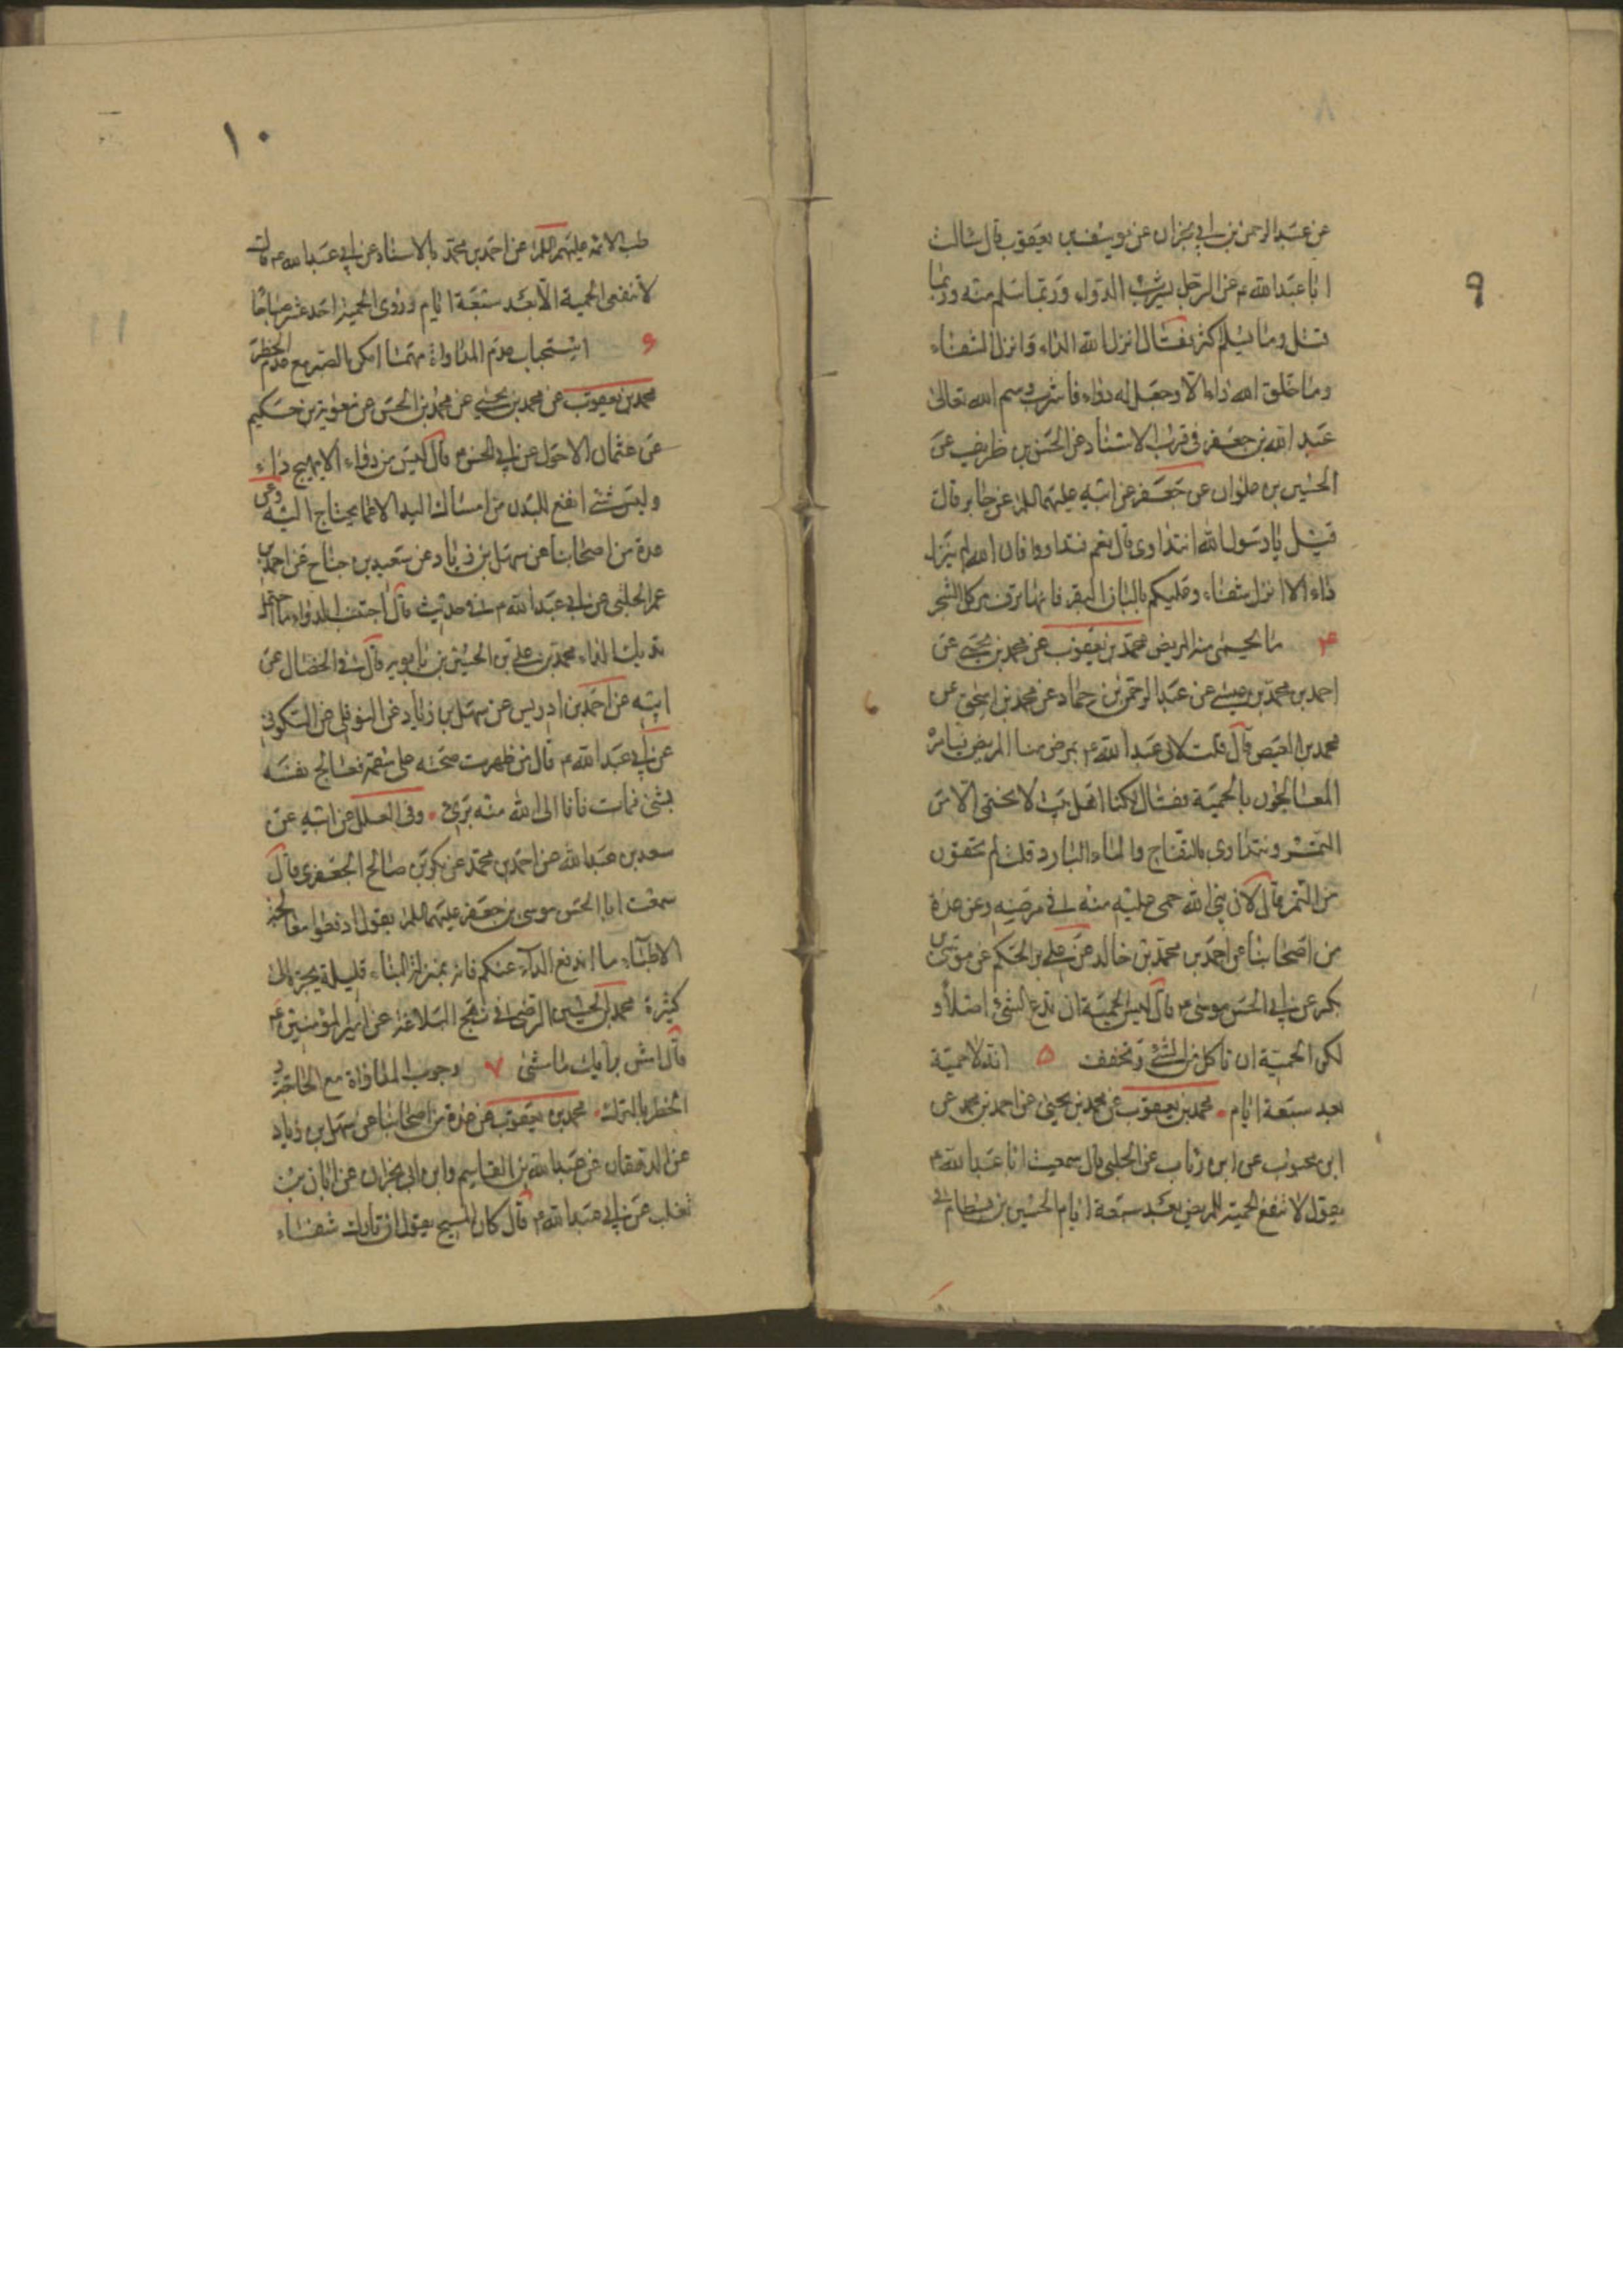 ٩
عن عبد الرحمن بن ابي نجران عن يونس بن يعقوب قال سالت
ابا عبد الله ع عن الرجل يشرب الدواء وربما سلم منه وربما
قتل وما يسلم اكثر فقال انزل الله الداء وانزل الشفاء
وما خلق الله داء الا وجعل له دواء فاشرب وسم الله تعالى
عبد الله بن جعفر في قرب الاسناد عن الحسن بن ظريف عن
الحسين بن علوان عن جعفر عن ابيه عليهما السلم عن جابر قال
قيل يا رسول الله انتداوى قال نعم فتداووا فان الله لم ينزل
داء الا انزل شفاء وعليكم بالبان البقر فانها ترف من كل الشجر
۴ ما يحمى منه المريض محمد بن يعقوب عن محمد بن يحيى عن
احمد بن محمد بن عيسى عن عبد الرحمن بن حماد عن محمد بن اسحق عن
محمد بن الفيض قال قلت لابي عبد الله ع يمرض منا المريض فيامره
المعالجون بالحمية فقال لكنا اهل بيت لا نحتمي الا من
التمر ونتداوى بالتفاح والماء البارد قلت لم تحتمون
من التمر قال لان نبي الله حمى عليه منه في مرضه وعن عدة
من اصحابنا عن احمد بن محمد بن خالد عن علي بن الحكم عن موسى بن
بكر عن ابي الحسن موسى ع قال ليس الحمية ان تدع الشيء اصلا و
لكن الحمية ان تاكل من الشيء وتخفف ۵ انه لا حمية
بعد سبعة ايام محمد بن يعقوب عن محمد بن يحيى عن احمد بن محمد عن
ابن محبوب عن ابن رئاب عن الحلبي قال سمعت ابا عبد الله ع
يقول لا تنفع الحمية للمريض بعد سبعة ايام الحسين بن بسطام في
١٠
طب الائمه عليهم السلم عن احمد بن محمد بالاسناد عن ابي عبد الله ع قال
لا تنفع الحمية الا بعد سبعة ايام وروى الحمية احد عشر صباحا
۶ استحباب عدم المداواة مهما امكن بالصبر مع عدم الخطر
محمد بن يعقوب عن محمد بن يحيى عن محمد بن الحسن عن معوية بن حكيم
عن عثمان الاحول عن ابي الحسن ع قال ليس من دواء الا يهيج داء
وليس شيء انفع للبدن من امساك اليد الا عما يحتاج اليه وعن
عدة من اصحابنا عن سهل بن زياد عن سعيد بن جناح عن احمد بن
عمر الحلبي عن ابي عبد الله ع في حديث قال اجتنب الدواء ما احتمل
بدنك الداء محمد بن علي بن الحسين بن بابويه في الخصال عن
ابيه عن احمد بن ادريس عن سهل بن زياد عن النوفلي عن السكوني
عن ابي عبد الله ع قال من ظهرت صحته على سقمه فعالج نفسه
بشيء فمات فانا الى الله منه بريء وفي العلل عن ابيه عن
سعد بن عبد الله عن احمد بن محمد عن بكر بن صالح الجعفري قال
سمعت ابا الحسن موسى بن جعفر عليهما السلم يقول ادفعوا معالجة
الاطباء ما اندفع الداء عنكم فانه بمنزلة البناء قليله يجر الى
كثيره محمد بن الحسين الرضي في نهج البلاغة عن امير المؤمنين ع
قال امش بدائك ما مشى ۷ وجوب المداواة مع الحاجة و
الخطر بالترك محمد بن يعقوب عن عدة من اصحابنا عن سهل بن زياد
عن الدهقان عن عبد الله بن القاسم وابن ابي نجران عن ابان بن
تغلب عن ابي عبد الله ع قال كان المسيح يقول ان تارك شفاء